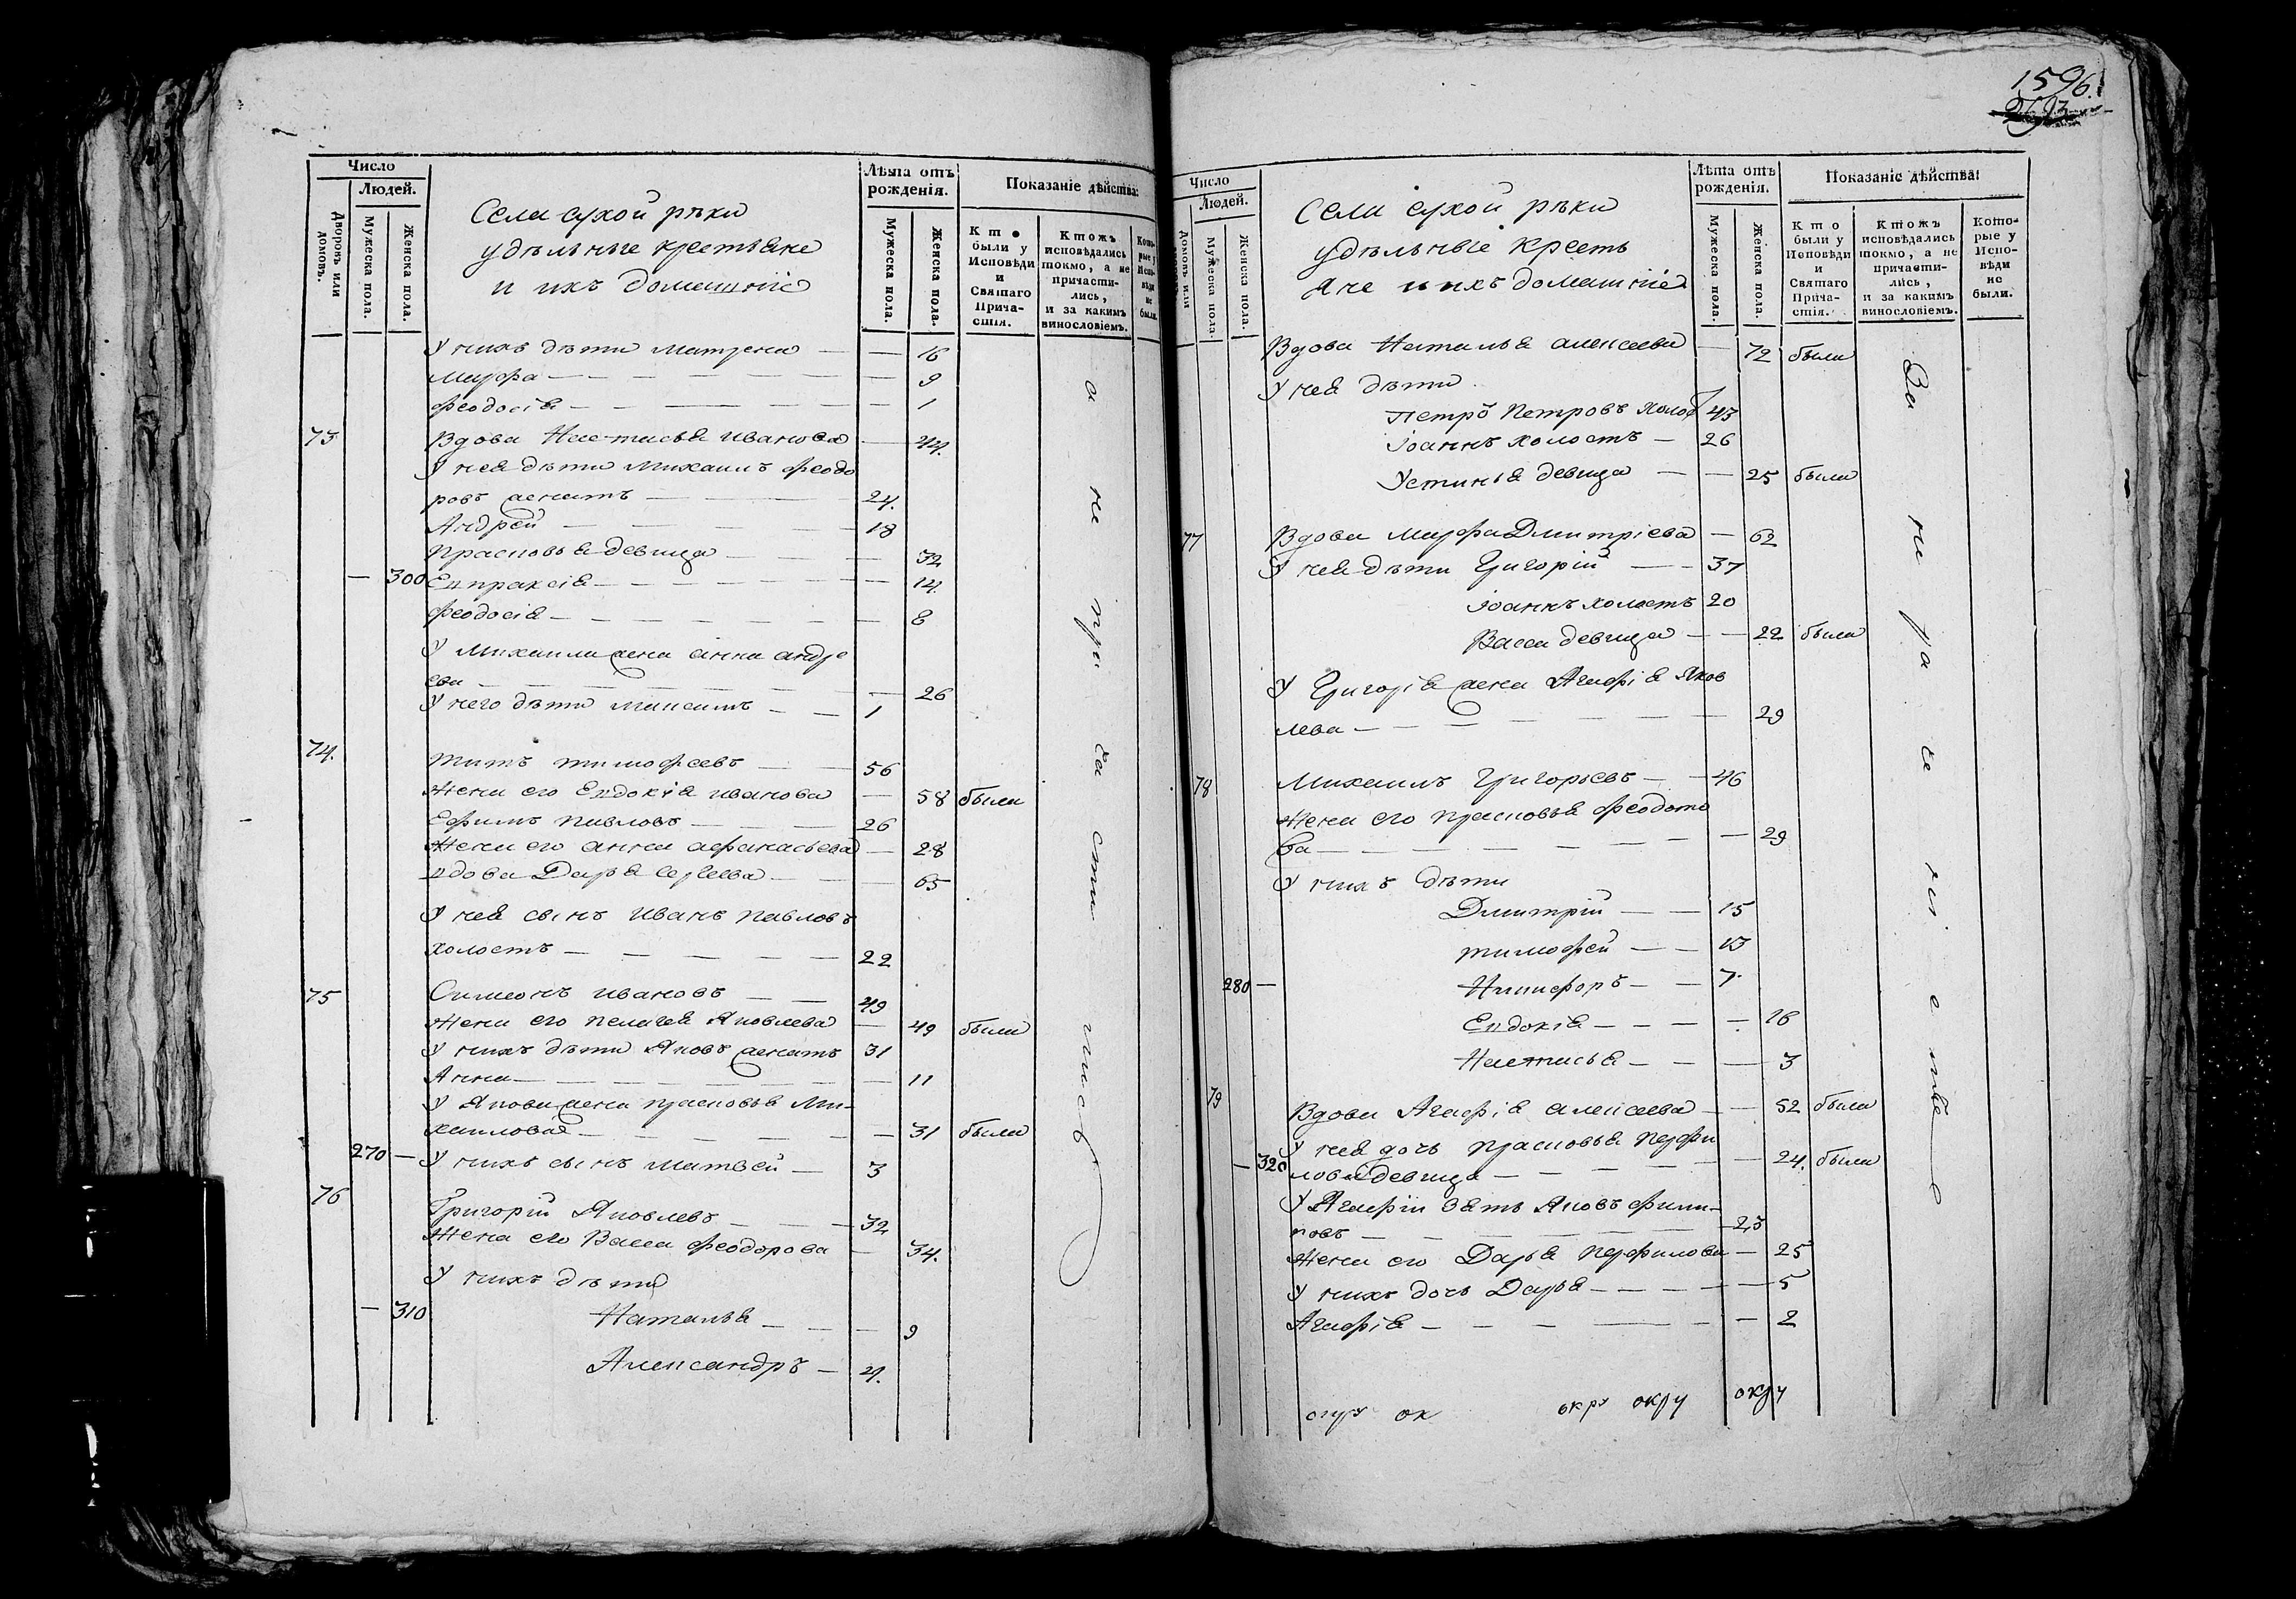 Число
Людей.
Дворовъ или домовъ.
Мужеска пола.
Женска пола.
Села сухой рѣки
удѣльные крестьяне
и ихъ домашніе
Лѣта отъ рожденія.
Мужеска пола.
Женска пола.
Показаніе дѣйства:
Кто были у Исповѣди и Святаго Причастія.
Ктожъ исповѣдались токмо, а не причастились, и за какимъ винословіемъ.
Которые у Исповѣди не были.
У нихъ дѣти Матрена — — 16
Марфа — — 9
Феодосія — — 1
73 Вдова Настасья Иванова — 44.
У нея дѣти Михаилъ Феодо
ровъ женатъ — 24.
Андрей — 18
Прасковья девица — 32
— 300 Евпраксія — — 14.
Феодосія — — 8
У Михаила жена Анна Андре
ева — — 26
У него дѣти Максимъ — 1
74. Титъ Тимофеевъ — 56
Жена его Евдокія Иванова — 58 были
Ефимъ Павловъ — 26
Жена его Анна Афанасьева — 28
вдова Дарья Сергеева — 65
У нея сынъ Иванъ Павловъ
холостъ — 22
75 Симеонъ Ивановъ — 49
Жена его Пелагея Яковлева — 49 были
У нихъ дѣти Яковъ женатъ 31
Анна — — 11
У Якова жена Прасковья Ми-
хаилова — — 31 были
270 — У нихъ сынъ Матвей — 3
76 Григорій Яковлевъ — 32
Жена его Васса Феодорова — 34.
У нихъ дѣти
— 310 Наталья — — 9
Александръ — 4.
а не при ча сти лись
1596.
Число
Людей.
Домовъ или
Мужеска пола.
Женска пола.
Села сухой рѣки
удѣльные кресть
яне и ихъ домашніе
Лѣта отъ рожденія.
Мужеска пола.
Женска пола.
Показаніе дѣйства:
Кто были у Исповѣди и Святаго Причастія.
Ктожъ исповѣдались токмо, а не причастились, и за какимъ винословіемъ.
Которые у Исповѣди не были.
Вдова Наталья Алексеева — 72 были
У нея дѣти
Петръ Петровъ холос 43
Іоаннъ холостъ — 26
Устинья девица — — 25 были
77 Вдова Марфа Дмитріева — 62
У нея дѣти Григорій — 37
Іоаннъ холостъ 20
Васса девица — — 22 были
У Григорія жена Агафія Яков
лева — — 29
78 Михаилъ Григорьевъ — 46
Жена его Прасковья Феодото
ва — — 29
У нихъ дѣти
Дмитрій — 15
Тимофей — 13
280 — Никифоръ — 7.
Евдокія — — 16
Настасья — — 3
79 Вдова Агафія Алексеева — — 52 были
У нея дочь Прасковья Перфи
— 320 лова девица — — 24. были
У Агафіи зять Яковъ Филип-
повъ — 23
Жена его Дарья Перфилова — 25
У нихъ дочь Дарья — — 5
Агафія — — 2
ок окру окру окру
За не ра че ні е мъ